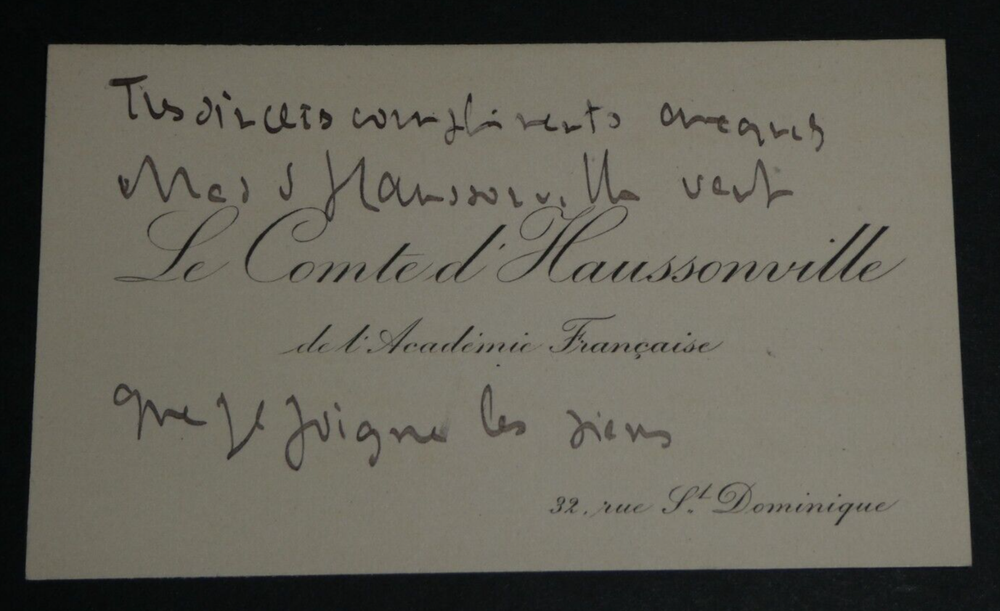 Tres sinceres compliments auxquels
Mme d'Haussonville veut
Le Comte d'Haussonville
de l'Académie Française
que je joigne les siens
32, rue St. Dominique